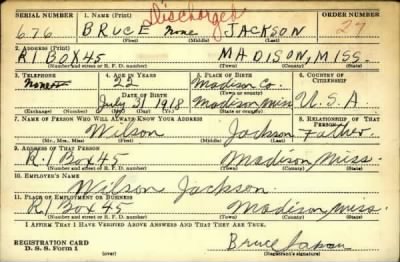 Discharged
SERIAL NUMBER 1. NAME (Print) ORDER NUMBER
676 BRUCE None JACKSON 27
(First) (Middle) (Last)
2. ADDRESS (Print)
R1 BOX 45 MADISON, MISS.
(Number and street or R. F. D. number) (Town) (County) (State)
3. TELEPHONE 4. AGE IN YEARS 5. PLACE OF BIRTH 6. COUNTRY OF CITIZENSHIP
None 22 Madison Co.
DATE OF BIRTH (Town or county)
July 3 1918 Madison Miss U.S.A
(Exchange) (Number) (Mo.) (Day) (Yr.) (State or country)
7. NAME OF PERSON WHO WILL ALWAYS KNOW YOUR ADDRESS 8. RELATIONSHIP OF THAT PERSON
Wilson Jackson Father
(Mr., Mrs., Miss) (First) (Middle) (Last)
9. ADDRESS OF THAT PERSON
R.1 Box 45 Madison Miss.
(Number and street or R. F. D. number) (Town) (County) (State)
10. EMPLOYER'S NAME
Wilson Jackson.
11. PLACE OF EMPLOYMENT OR BUSINESS
R1 Box 45 Madison, Miss.
(Number and street or R. F. D. number) (Town) (County) (State)
I AFFIRM THAT I HAVE VERIFIED ABOVE ANSWERS AND THAT THEY ARE TRUE.
REGISTRATION CARD
D. S. S. Form 1
(over)
Bruce
(Registrant's signature)